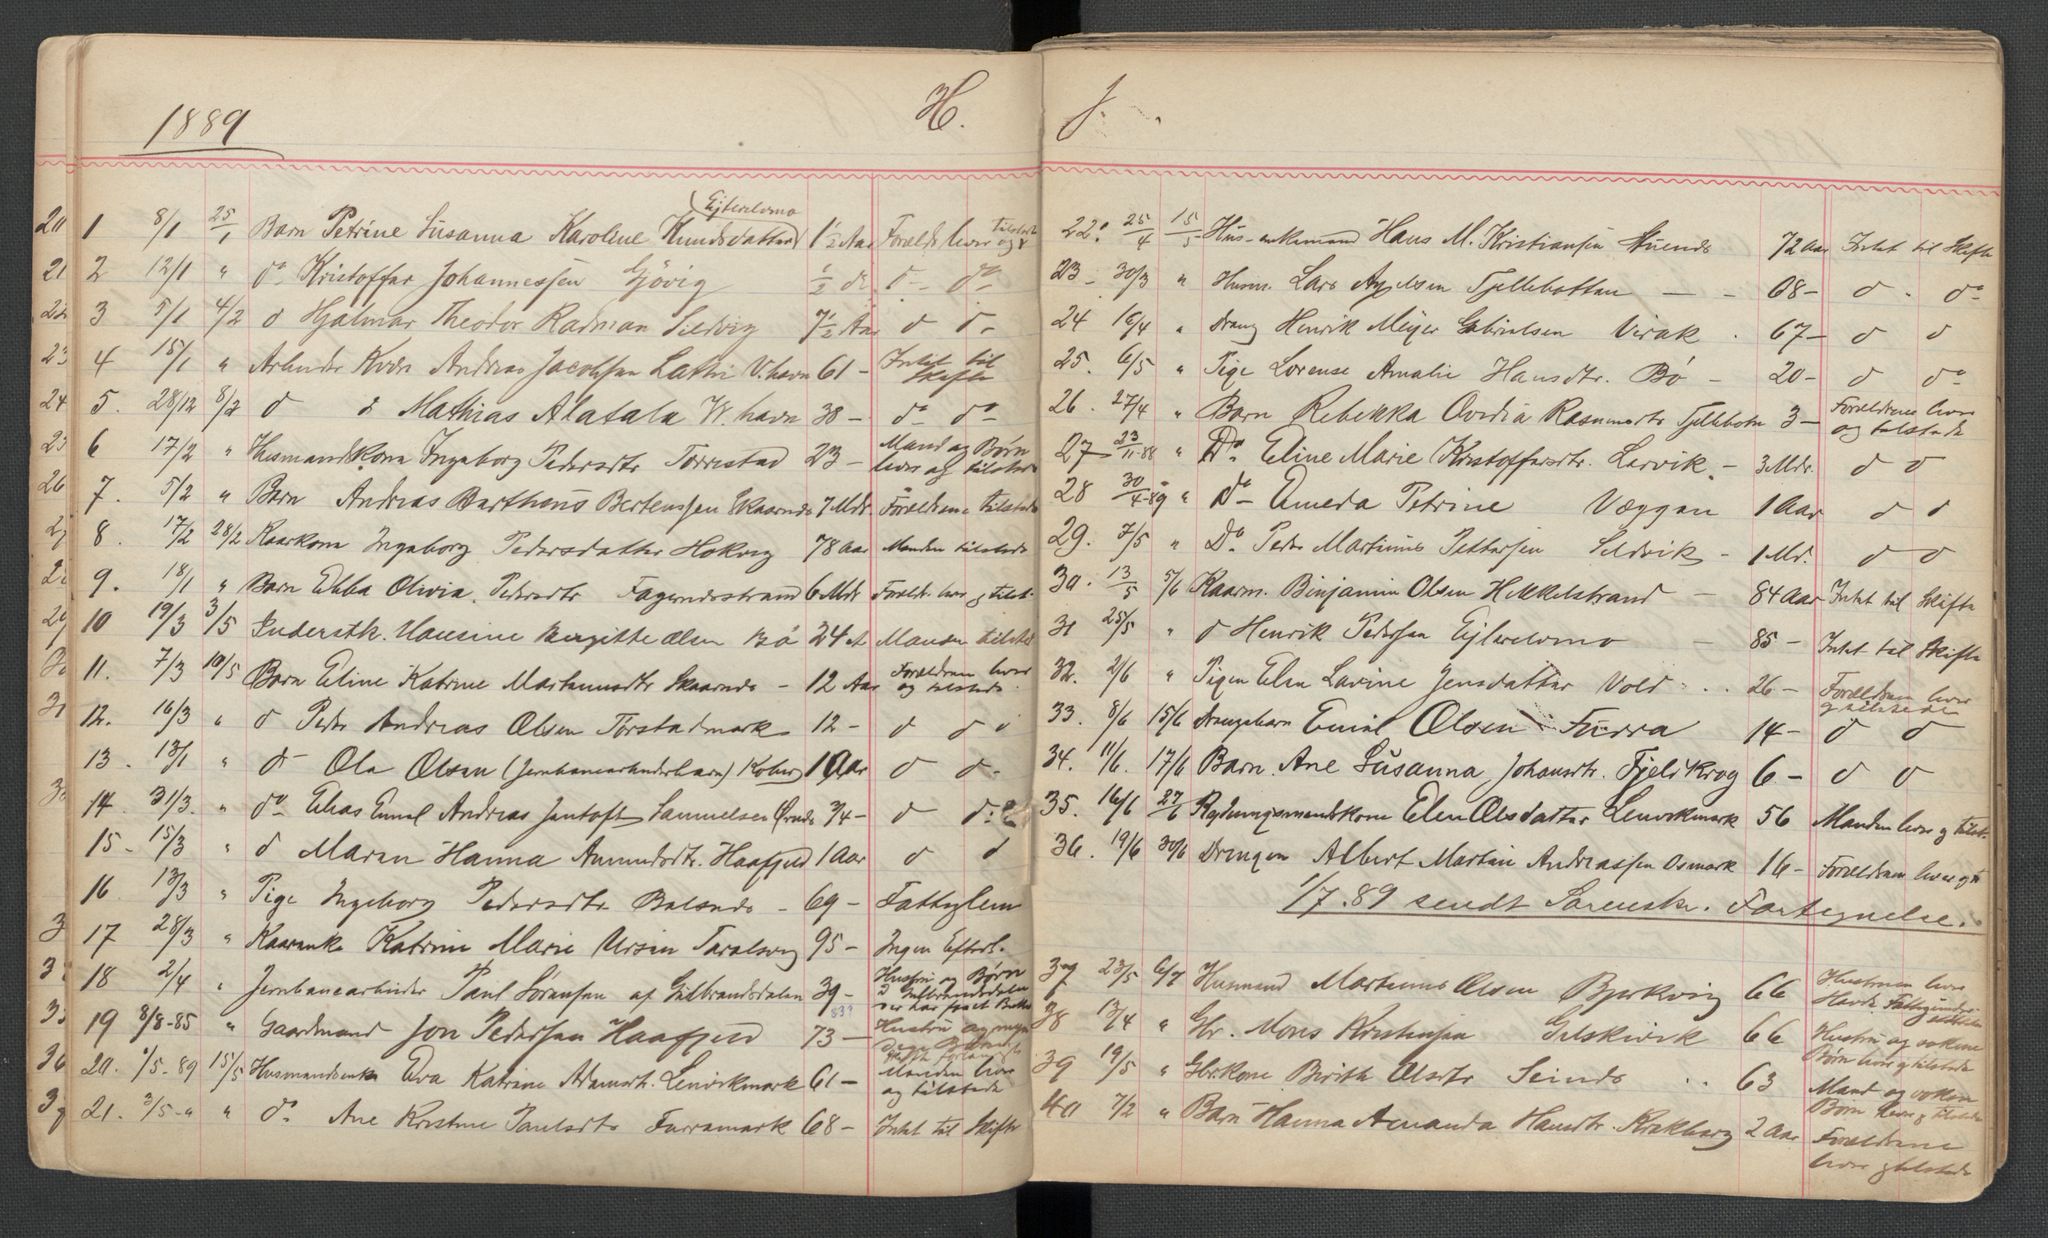 1889
H.
Ejterelvmo
1 8/1 25/1 Barn Petrine Susanna Karoline Knudsdatter 1½ Aar Foreldr. lever og tilstede
2 12/1 " do Kristoffer Johannessen Gjövig ½ d d- do-
3 5/1 4/2 d Hjalmar Theodor Radman Sildvig 7½ Aar d d-
4 15/1 " Andreas Jacobsen V. havn 61 - Intet til Skifte
5. 28/12 8/2 d d Mathias Alatala W. havn 38 - do do
6 17/2 " Husmandkone Ingeborg Pedersdtr Torrestad 23 - Mand og Børn lever og tilstede
7. 5/2 " Barn Andreas Bartheus Bertenssen Skaarnds 7 Mdr. Foreldrene tilstede
8. 17/2 28/2 Kaarkone Ingeborg Pedersdatter Hokvig 78 Aar Manden tilstede
9. 18/1 " Barn Ebba Olivia Pedersdtr Fagernesstrand 6 Mdr Foreld. lever og tilst.
10 19/3 3/5 Inderstk. Hansine Bergitte Olsen Bö 24 A Manden tilsted
11. 7/3 10/5 Barn Eline Katrine Martinusdtr Skaarnds - 12 Aar Foreldren lever og tilstede.
12. 16/3 " d Peder Andreas Olsen Torstadmark 12 - d d d
13. 13/1 " d- Ola Olsen (Jernbanearbeiderbarn) Koberg 1 Aar d d-
14. 31/3. " do Elias Emil Andreas Jentoft Samuelsen 3/4 - d d-
15- 15/3 " d Maren Hanna Amundsdtr. Haafjeld 1 Aar d d
16. 13/3 " Pige Ingeborg Pedersdtr Balsnds - 69 - Fattiglem
17 28/3 " Kaarenke Katrine Marie Ursin Taralsvig 95 - Ingen Efterl.
18 2/4 " Jernbanearbeider Paul Sörensen af Gulbrandsdalen 39 - Hustru og Børn i Gulbrandsdalen
19 8/8-85 " Gaardmand Jon Pedersen Haafjeld 73 - Hustru og
20. 1/5-89 15/5 Husmandsenke Eva Katrine Adamsdtr. Lenvikmark 61 - Manden lever og tilstede
21. 3/5-" " do Ane Kristine Paulsdtr Furramark 68 - Intet til Skifte
J.
22. 25/4 15/5 Hus-enkemand Hans M. Kristiansen 72 Aar Intet til Skifte
23- 30/3 " Husm. Lars Axelsen Fjellbotten - - 68 - d - do
24 16/4 " Dreng Henrik Meyer Gabrielsen Virak . 67 - d d
25. 6/5 " Pige Lorense Amalie Hansdtr. Bø - 20 - d do
26. 27/4 " Barn Rebekka Ovidia Rasmusdtr Fjellbotn 3 - Foreldrene lever og tilstede
27 23/11-88 " Do Eline Marie Kristoffersdtr. Larvik - 3 Mdr. d d
28 30/4-89 " Do Ameda Petrine Væggen 1 Aar d d
29. 7/5 " Do Peder Martinus Pettersen Sildvik - 1 Md. d d
30. 13/5 5/6 Kaarm. Binjamin Olsen Hekkelstrand - 84 Aar Intet til Skifte
31 25/5 " d Henrik Pedersen Ejterelvmo - 85 - Intet til Skifte
32. 2/6 " Pigen Elen Lavine Jensdatter Vold . . 26 - Foreldren lever og tilstede
33. 8/6 15/6 Drengebarn Emil Olsen Furra 14 - d d
34. 11/6. 17/6 Barn. Ane Susanna Johansdtr. Fjeldkrog 6 - d d
35. 16/6 27/6 Rydningsmandskone Elen Olsdatter Lenvikmark 56 Manden lever og tilst.
36. 19/6 30/6 Drengen Albert Martin Andreassen Osmark 16 - Foreldren lever og t
1/7.89 sendt Sorenskr. Fortegnelse.
37 23/5 6/7 Husmand Martinus Olsen Bjerkvig 66 Hustruen lever
38 13/4 " Gbr. Mons Kristensen 66 Hustru og voksne Børn lever og tilstede
39 19/5 " Gbrkone Birith Olsdtr Seinds . . 63 Mand og voksen Børn lever og tilstede
40 7/2 " Barn Hanna Amanda Hansdtr. Krakberg 2 Aar Foreldrene lever og tilstede